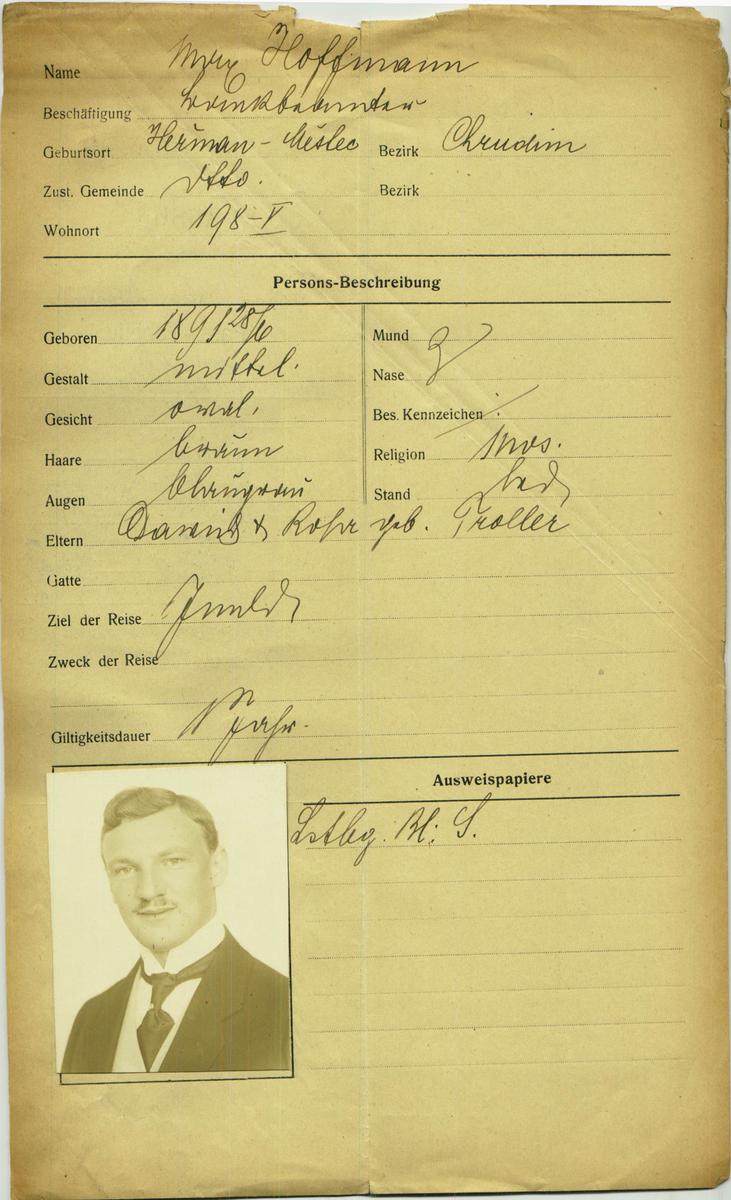 Name Max Hoffmann
Beschäftigung Bankbeamter
Geburtsort Heřman-Městec Bezirk Chrudim
Zust. Gemeinde dtto. Bezirk
Wohnort 198-V
Persons-Beschreibung
Geboren 1891 28/6
Gestalt mittel.
Gesicht oval.
Haare braun
Augen blaugrau
Mund
Nase
Bes. Kennzeichen
Religion mos.
Stand led
Eltern David & Rosa geb. Troller
Gatte
Ziel der Reise Inld
Zweck der Reise
Giltigkeitsdauer 1 Jahr.
Ausweispapiere